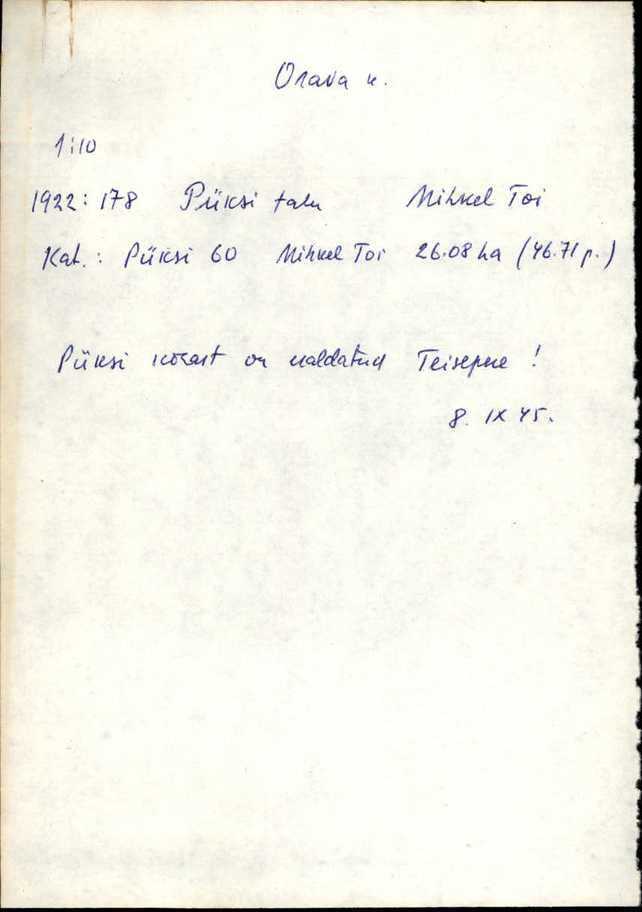 Orava k.
1:10
1922: 178 Püksi talu Mihkel Toi
Kat.: Püksi 60 Mihkel Toi 26.08 ha (46.71 p.)
Püksi kõrast on kaldatud !
8. IX 45.